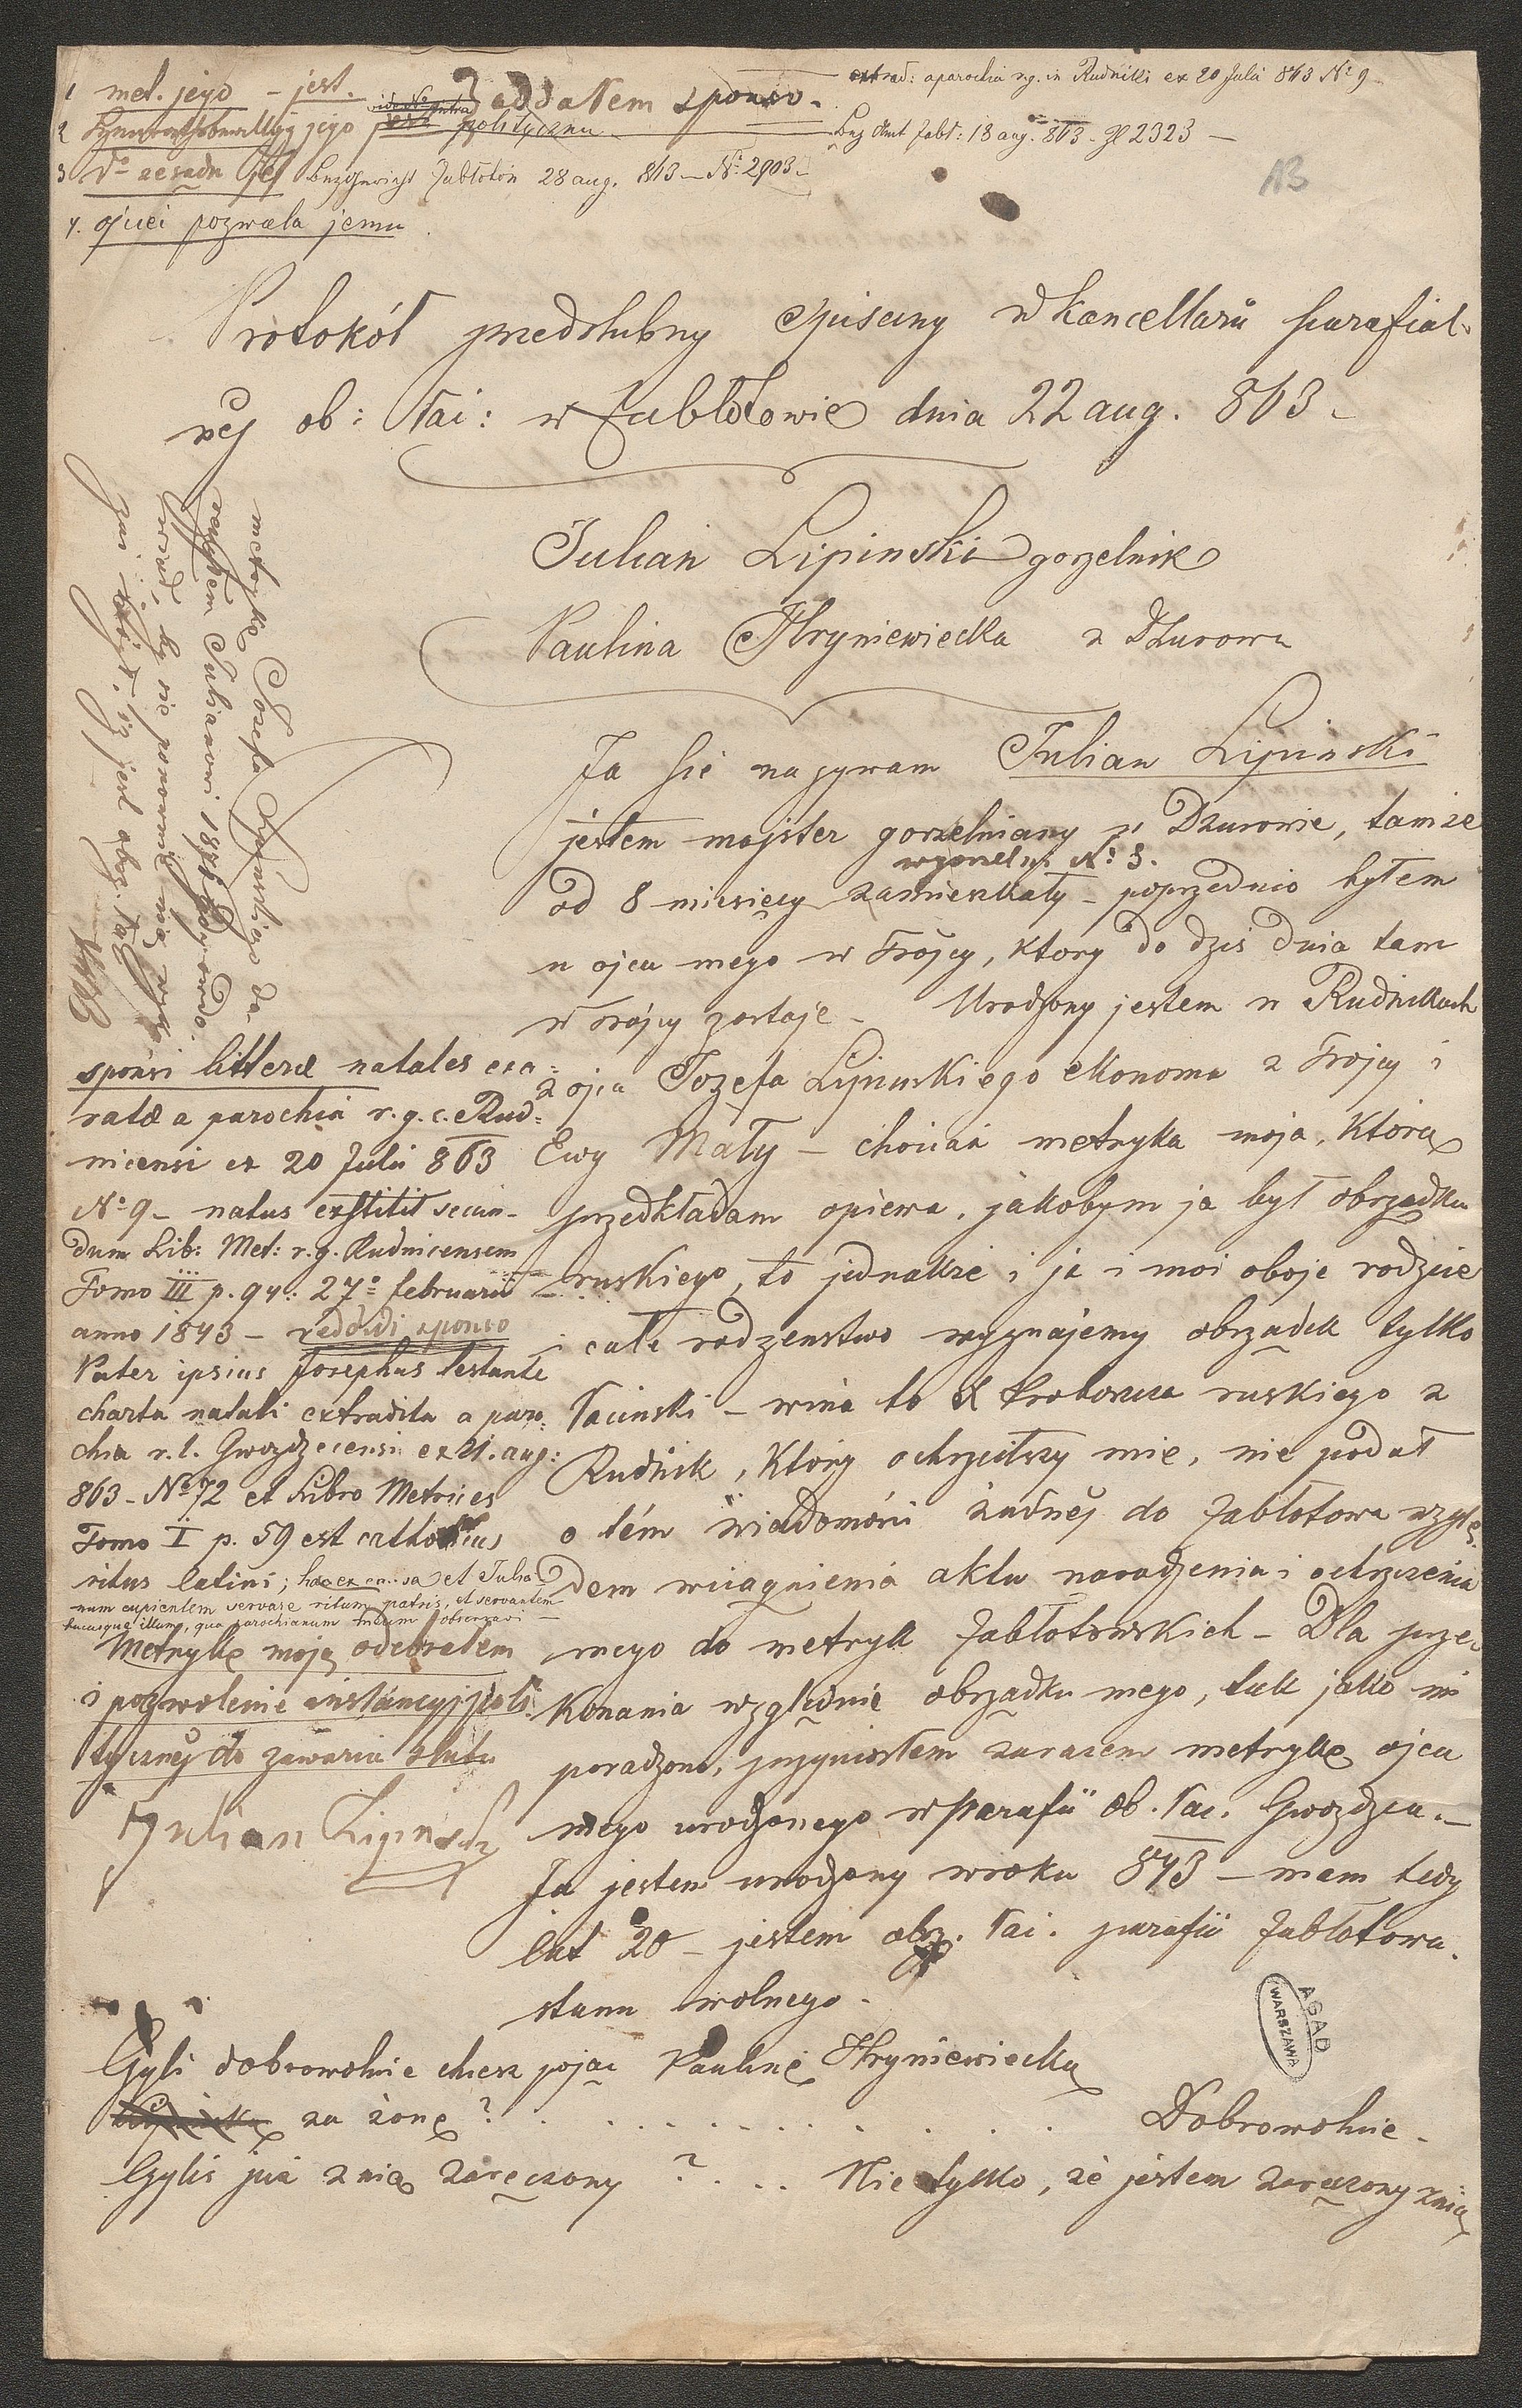 1 met. jego – jest. oddałem sponso. extrad: a parochia r.g. in Rudniki ex 20 Julii 863 Nº 9
2 jego polityczna Bez Amt Zabł: 18 aug. 863. Zl 2323 –
3 dº ze sadu jest Bezgericht Zabłotow 28 aug. 863 – Nº 2903 –
4. ojciec pozwala jemu
13
Protokół przedślubny spisany w kancellarii parafial-
nej ob: łaci: w Zabłotowie dnia 22 aug. 863 –
Julian Lipinski gorzelnik
Paulina Hryniewiecka z Dżurowa
Ja się nazywam Julian Lipinski
jestem majster gorzelniany w Dżurowie, tamże
w gorzelni Nº 3.
od 8 miesięcy zamieszkały – poprzednio byłem
u ojca mego w Trojcy, ktory do dziś dnia tam
w Trojcy zostaje – Urodzony jestem w Rudnikach
z ojca Jozefa Lipinskiego ekonoma z Trojcy i
Ewy Mały – chociaż metryka moja, ktorą
przedkładam opiewa, jakobym ja był obrządku
ruskiego, to jednakże i ja i moi oboje rodzice
i całe rodzenstwo wyznajemy obrządek tylko
łacinski – wina to X proboszcza ruskiego z
Rudnik, ktory ochrzciwszy mie, nie podał
o tém wiadomości żadnéj do Zabłotowa wzglę-
dem wciągnienia aktu narodzenia i ochrzczenia
mego do metryk Zabłotowskich – Dla prze-
konania względnie obrządku mego, tak jako mi
poradzono, przyniosłem zarazem metrykę ojca
mego urodzonego w parafii ob. łac. Gwozdzca. –
Ja jestem urodzony w roku 843 – mam tedy
lat 20 – jestem obrz. łaci. parafii Zabłotowa.
stanu wolnego –
metrykę Jozefa Lipinskiego
Julianowi
że jest obrz. łac.
sponsi litteræ natales exa-
ratæ a parochia r.g.c. Rud-
nicensi ex 20 Julii 863
Nº 9 – natus exstitit secun-
dum Lib: Met: r.g. Rudnicensem
Tomo III p. 94: 27º februarii
anno 1843 – reddidi sponso
Pater ipsius Josephus testante
charta natali extradita a paro-
chia r.l. Gwozdzecensi ex 21. aug:
863 – Nº 72 et Libro Metrices
Tomo I p. 59 est catholicus
ritus latini; hac ex causa et Julia-
num cupientem servare ritum patris, et servantem
hucusque illum, qua parochianum meum observavi –
Metrykę moją odebrałem
i pozwolenie instancyj poli-
tycznéj do zawarcia ślubu
Julian Lipinski
AGAD
WARSZAWA
Czyli dobrowolnie chcesz pojąć Paulinę Hryniewiecką
za żonę? . . . . . . . . . . Dobrowolnie –
Czyliś już z nią zaręczony ? . . . Nie tylko, że jestem zaręczony z nią